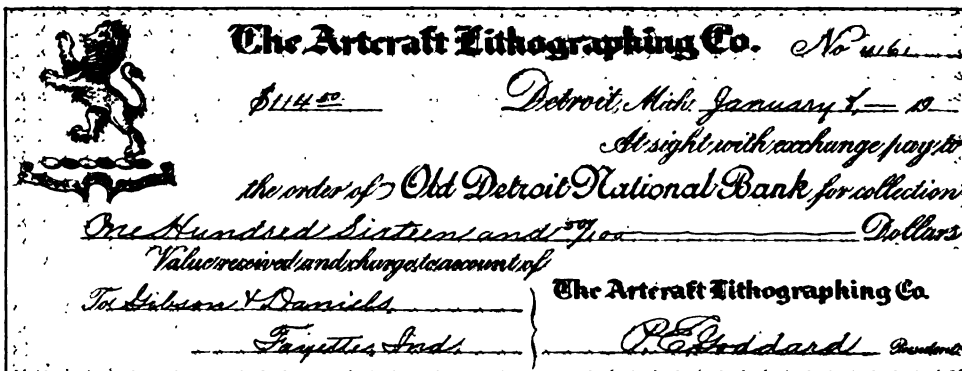 The Artcraft Lithographing Co. No 4161
$114 50 Detroit, Mich. January 8, — 19
At sight with exchange pay to
the order of Old Detroit National Bank for collection
One Hundred Sixteen and 50/100 Dollars
Value received and charge to account of
To Gibson & Daniels
Fayette, Ind.
The Artcraft Lithographing Co.
P. E. Goddard President